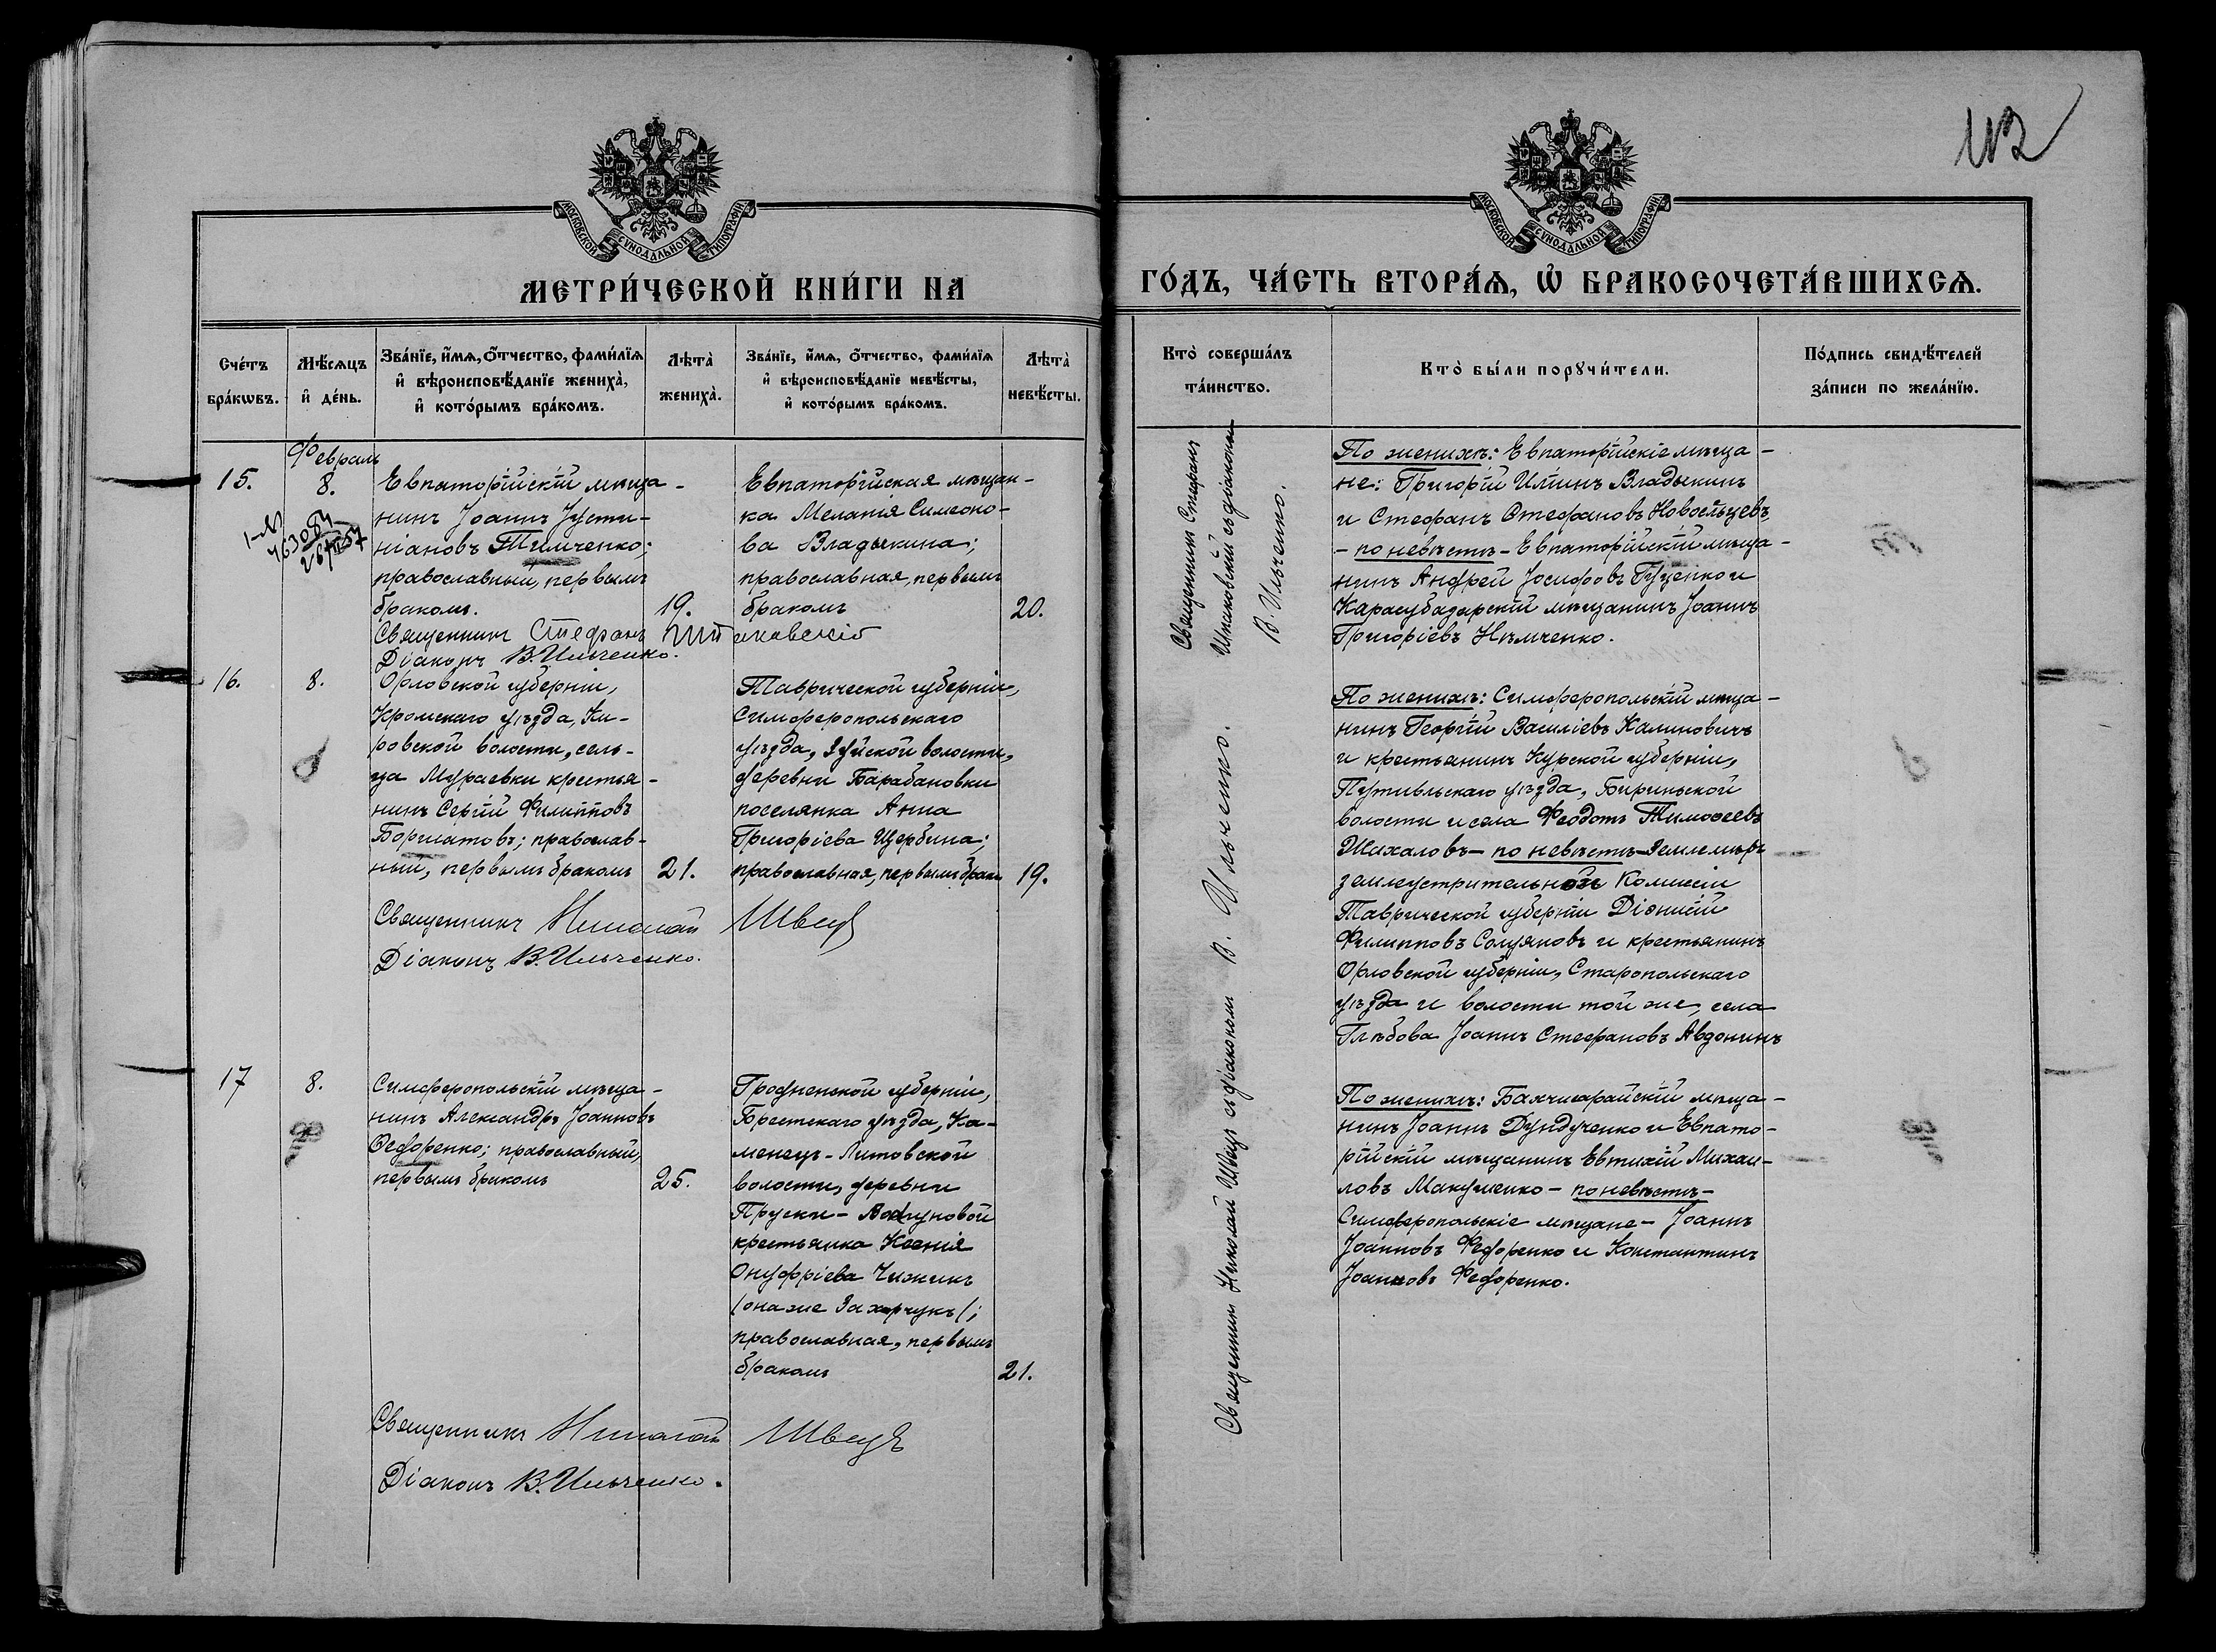 112
МОСКОВСКОЙ СУНОДАЛЬНОЙ ТИПОГРАФІИ
МОСКОВСКОЙ СУНОДАЛЬНОЙ ТИПОГРАФІИ
МЕТРИ́ЧЕСКОЙ КНИ́ГИ НА
ГО́ДЪ, ЧА́СТЬ ВТОРА́Ѧ, Ѡ҆ БРАКОСОЧЕТА́ВШИХСѦ.
Сче́тъ
бра́кѡвъ.
Мѣ́сѧцъ
и҆ де́нь.
Зва́нїе, и҆́мѧ, ѻ҆́тчество, фами́лїѧ
и҆ вѣроисповѣ́данїе жениха̀,
и҆ кото́рымъ бра́комъ.
Лѣта̀
жениха̀.
Зва́нїе, и҆́мѧ, ѻ҆́тчество, фами́лїѧ
и҆ вѣроисповѣ́данїе невѣ́сты,
и҆ кото́рымъ бра́комъ.
Лѣта̀
невѣ́сты.
Кто̀ соверша́лъ
та́инство.
Кто̀ бы́ли порꙋчи́тели.
По́дпись свидѣ́телей
за́писи по жела́нїю.
Февраль
15.
8.
Евпаторійскій мѣща-
нинъ Іоаннъ Іусти-
ніановъ Тимченко;
православный, первымъ
бракомъ.
19.
Евпаторійская мѣщан-
ка Меланія Симеоно-
ва Владыкина;
православная, первымъ
бракомъ
20.
Священникъ Стефанъ Шпаковскій
Діаконъ В. Ильченко.
Священникъ Стефанъ
Шпаковскій съ діакономъ
В. Ильченко.
По женихѣ: Евпаторійскіе мѣща-
не: Григорій Ильинъ Владыкинъ
и Стефанъ Стефановъ Новосельцевъ,
- по невѣстѣ - Евпаторійскій мѣща-
нинъ Андрей Іосифовъ Гуценко и
Карасубазарскій мѣщанинъ Іоаннъ
Григоріевъ Нѣмченко.
16.
8.
Орловской губерніи,
Кромскаго уѣзда, Ки-
ровской волости, сель-
ца Мураевки крестья-
нинъ Сергій Филипповъ
Борматовъ; православ-
ный, первымъ бракомъ
21.
Таврической губерніи,
Симферопольскаго
уѣзда, Зуйской волости,
деревни Барабановки
поселянка Анна
Григоріева Щербина;
православная, первымъ брак.
19.
Священникъ Николай Швецъ
Діаконъ В. Ильченко.
Священникъ Николай Швецъ съ діакономъ В. Ильченко.
По женихѣ: Симферопольскій мѣща-
нинъ Георгій Василіевъ Калиновичъ
и крестьянинъ Курской губерніи,
Путивльскаго уѣзда, Бириньской
волости и села Феодотъ Тимоѳеевъ
Жихаловъ - по невѣстѣ - Землемѣръ
землеустрительной Комиссіи
Таврической губерніи Діонисій
Филипповъ Солуяновъ и крестьянинъ
Орловской губерніи, Старопольскаго
уѣзда и волости той же, села
Глѣбова Іоаннъ Стефановъ Авдонинъ
17
8.
Симферопольскій мѣща-
нинъ Александръ Іоанновъ
Ѳедоренко; православный,
первымъ бракомъ
25.
Гродненской губерніи,
Брестскаго уѣзда, Ка-
менецъ-Литовской
волости, деревни
крестьянка Ксенія
Онуфріева Чижикъ
(она же Захарчукъ);
православная, первымъ
бракомъ
21.
Священникъ Николай Швецъ
Діаконъ В. Ильченко.
По женихѣ: Бахчисарайскій мѣща-
нинъ Іоаннъ Дундученко и Евпато-
рійскій мѣщанинъ Евтихій Михаи-
ловъ Макушенко - по невѣстѣ -
Симферопольскіе мѣщане - Іоаннъ
Іоанновъ Федоренко и Константинъ
Іоанновъ Федоренко.